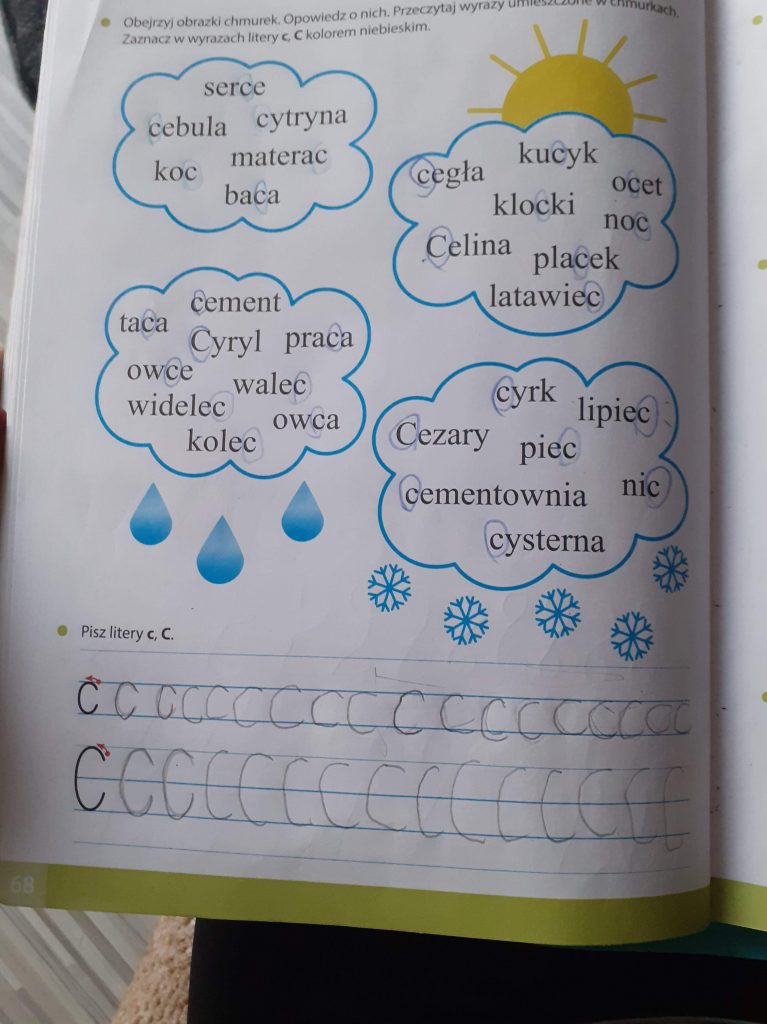 Obejrzyj obrazki chmurek. Opowiedz o nich. Przeczytaj wyrazy umieszczone w chmurkach.
Zaznacz w wyrazach litery c, C kolorem niebieskim.
serce
cebula cytryna
koc materac
baca
cegła kucyk
ocet
klocki noc
Celina placek
latawiec
taca cement
Cyryl praca
owce walec
widelec owca
kolec
cyrk lipiec
Cezary piec
cementownia nic
cysterna
Pisz litery c, C.
c c c c c c c c c c c c c c c c c c
C C C C C C C C C C C C C C C
68